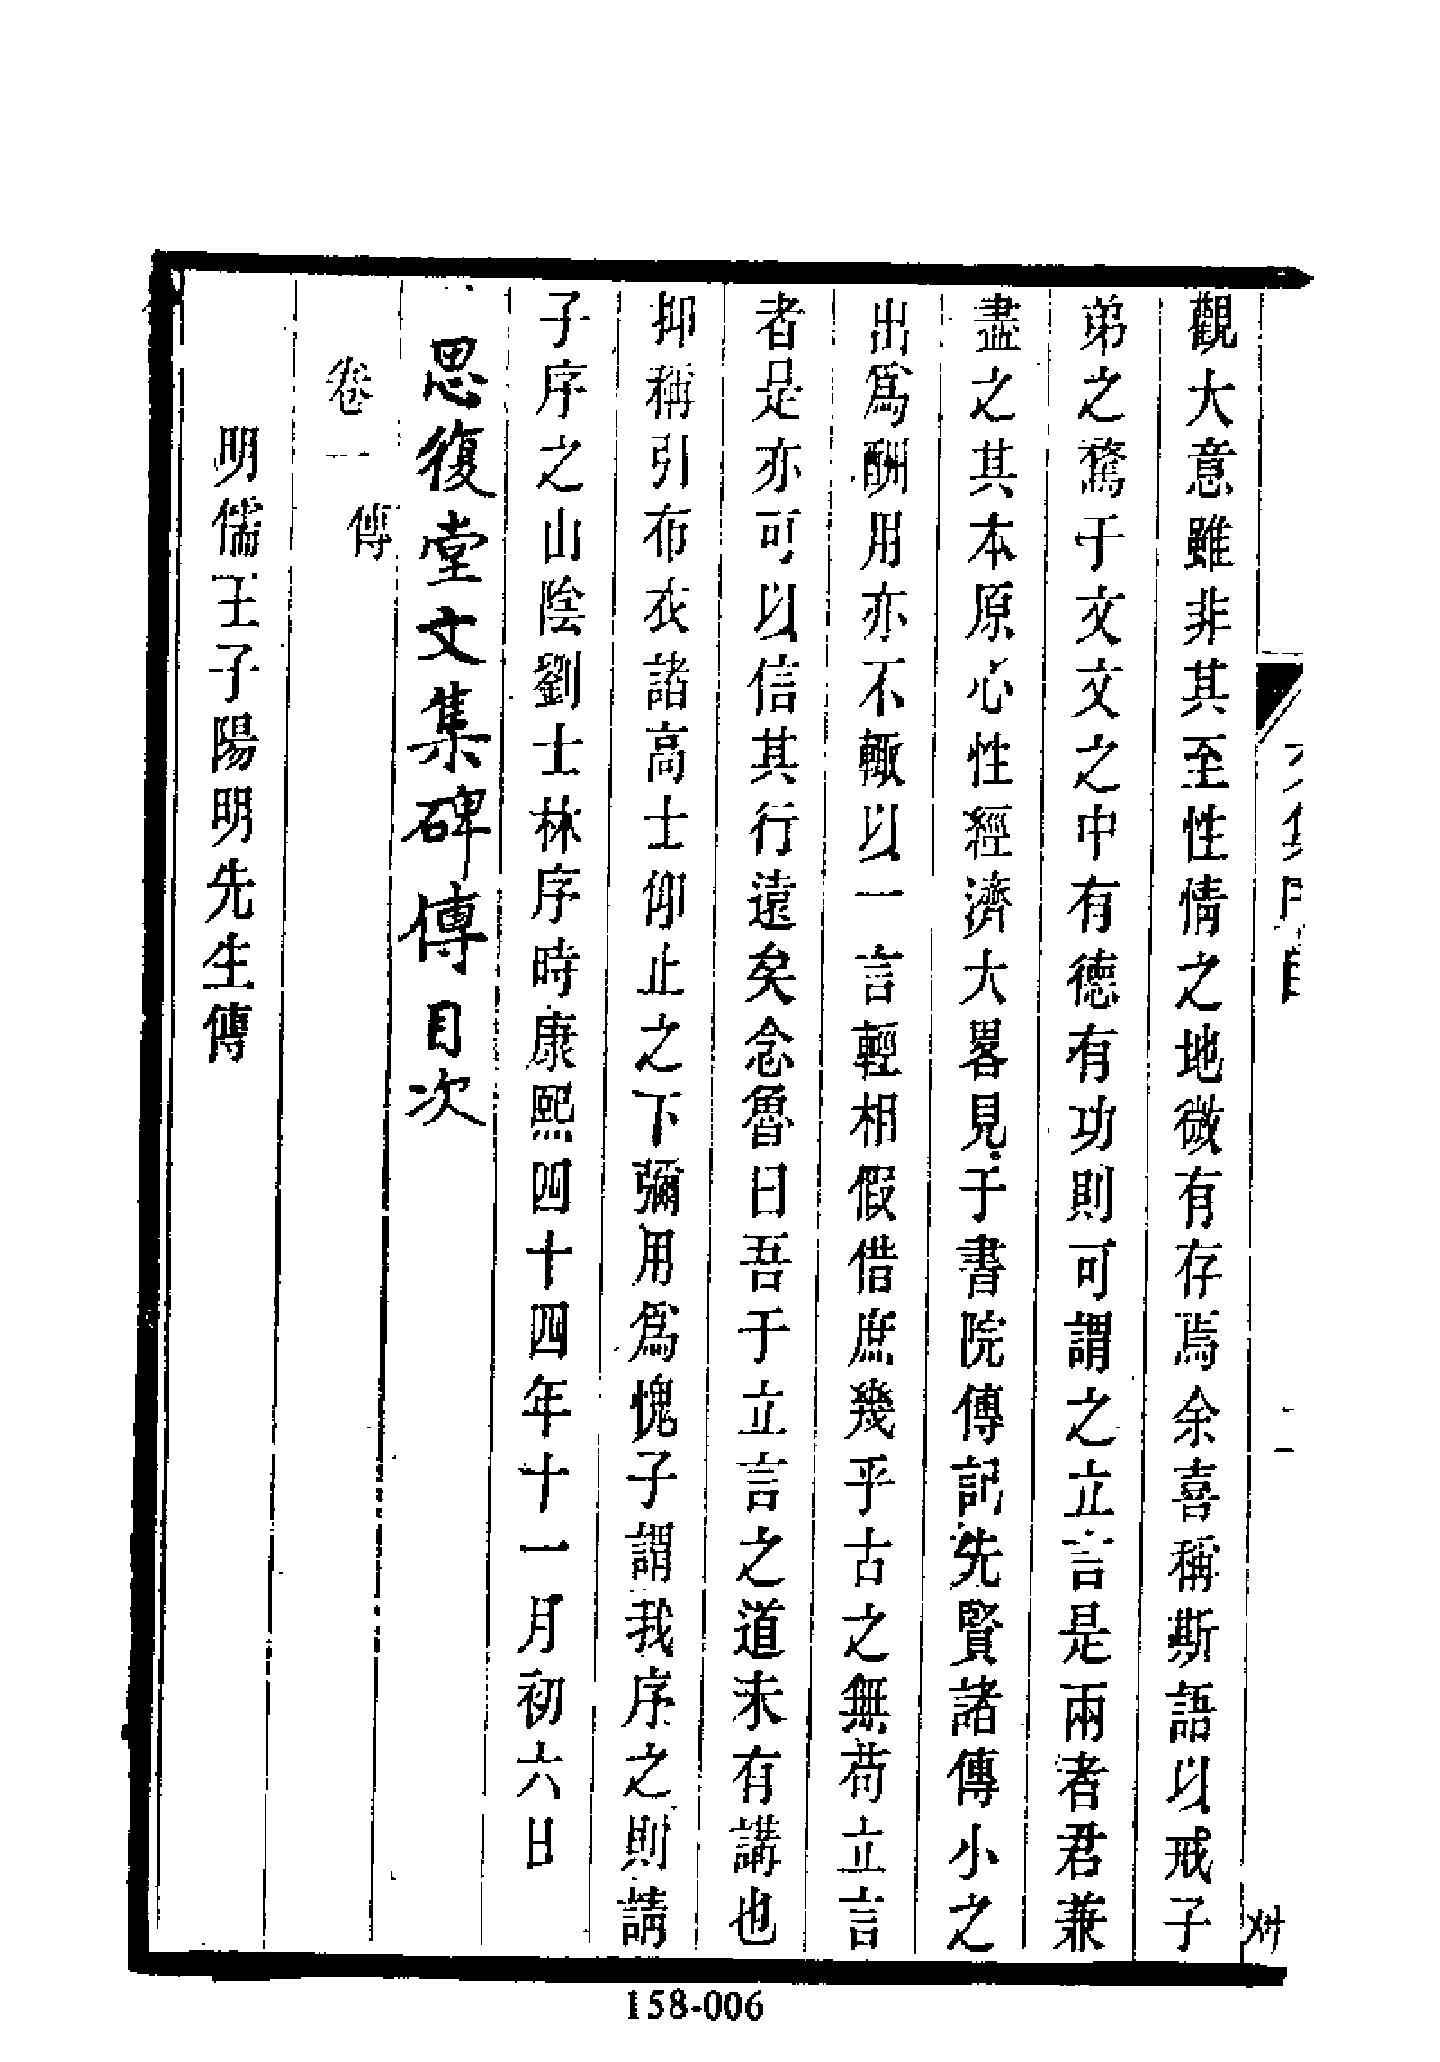 觀大意雖非其至性情之地微有存焉余喜稱斯語以戒子
弟之騖于文文之中有德有功則可謂之立言是兩者君兼
盡之其本原心性經濟大畧見于書院傳記先賢諸傳小之
出爲酬用亦不輙以一言輕相假借庶幾乎古之無苟立言
者是亦可以信其行遠矣念魯日吾于立言之道未有講也
抑稱引布衣諸高士仰止之下彌用爲愧子謂我序之則請
子序之山陰劉士林序時康熙四十四年十一月初六日
思復堂文集碑傳目次
卷一 傳
明儒王子陽明先生傳
158-006